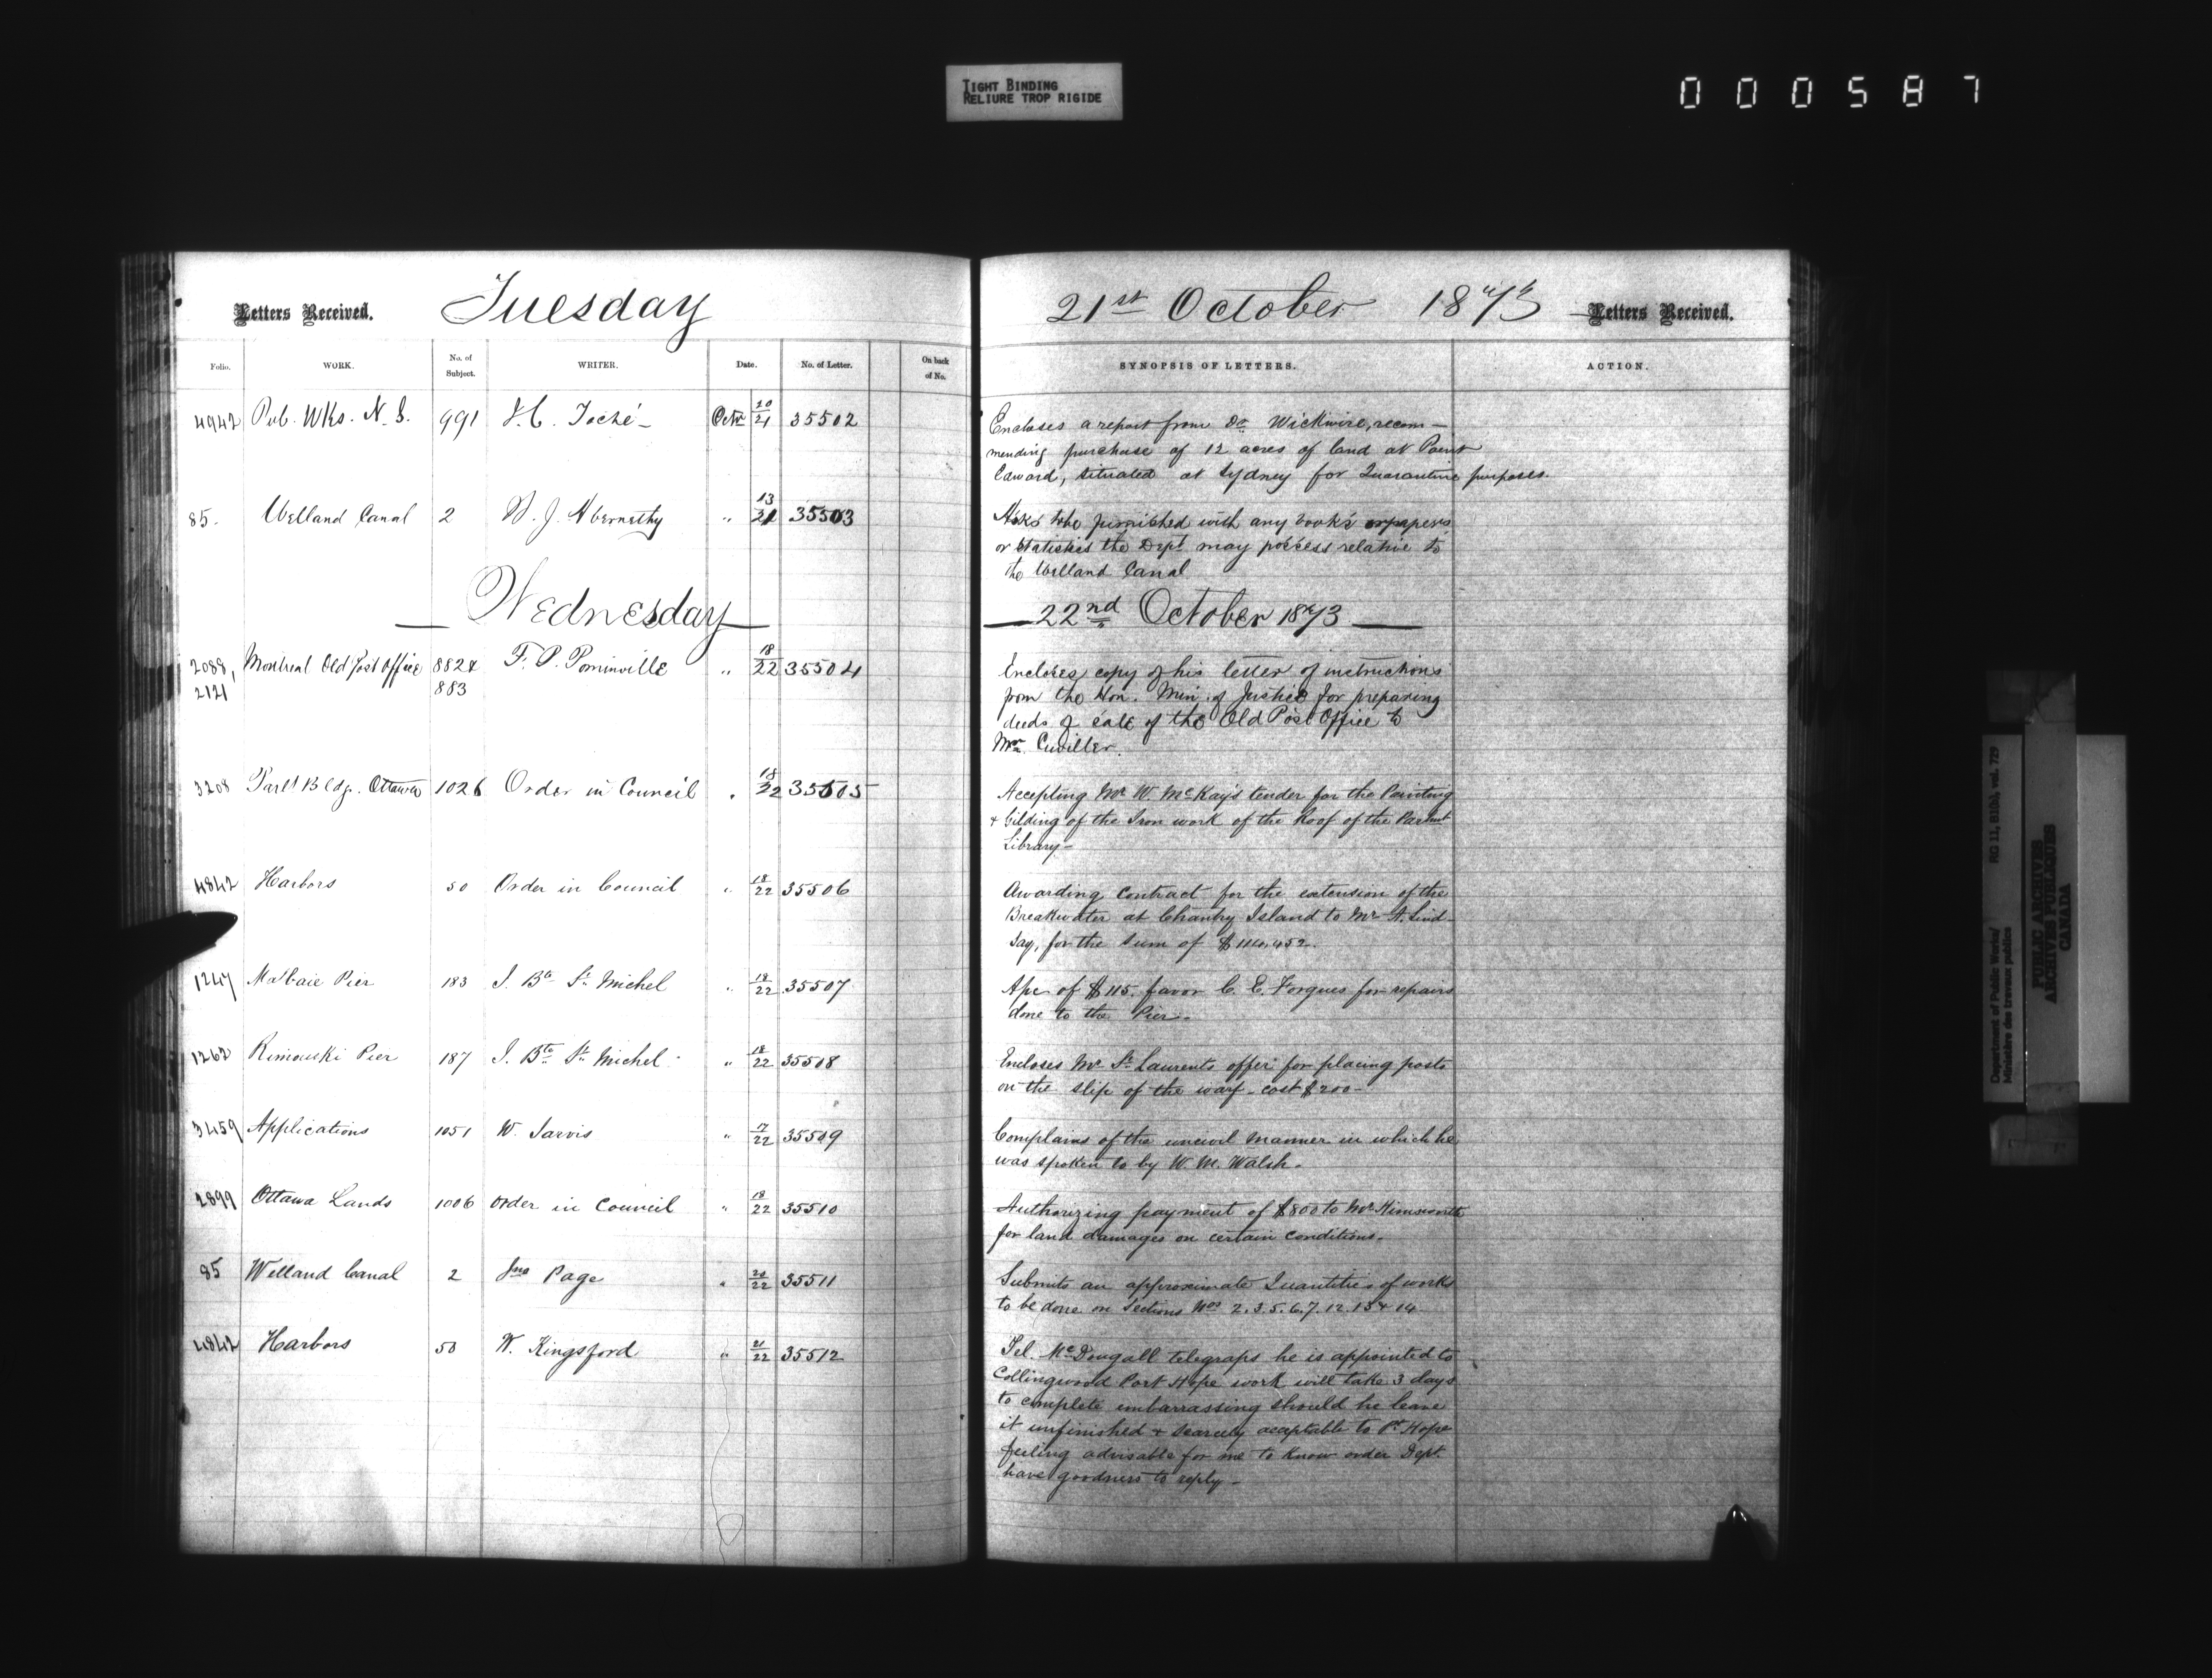 TIGHT BINDING
RELIURE TROP RIGIDE
000587
Letters Received. Tuesday
21st October 1873 Letters Received.
Folio. WORK. No. of Subject. WRITER. Date. No. of Letter. On back of No.
SYNOPSIS OF LETTERS. ACTION.
4942 Pub. Wks. N.S. 991 J.C. Taché Octr 20/21 35502
Encloses a report from Dr Wickwire, recom-
mending purchase of 12 acres of land at Point
Edward, situated at Sydney for Quarantine purposes.
85. Welland Canal 2 W. J. Abernethy " 13/21 35503
Asks to be furnished with any books or papers
or statistics the Dept may possess relative to
the Welland Canal
Wednesday
22nd October 1873
2089, Montreal Old Post Office 882 & F. P. Pominville " 18/22 35504
2121 883
Encloses copy of his letter of instructions
from the Hon. Min. of Justice for preparing
deeds of sale of the Old Post Office to
Mr. Cuviller.
3208 Parlt Bldg. Ottawa 1026 Order in Council " 18/22 35505
Accepting Mr W. McKay's tender for the Painting
& Gilding of the Iron work of the Roof of the Parlmt
Library-
4842 Harbors 50 Order in Council " 18/22 35506
Awarding contract for the extension of the
Breakwater at Chantry Island to Mr A. Lind-
say, for the sum of $114,452.
1247 Malbaie Pier 183 J. Bte St Michel " 18/22 35507
Apc of $115. favor C. E. Forgues for repairs
done to the Pier.-
1262 Rimouski Pier 187 J. Bte St Michel " 18/22 35508
Encloses Mr St Laurents offer for placing posts
on the slip of the warf - cost $200-
3459 Applications 1051 W. Jarvis " 17/22 35509
Complains of the uncivil manner in which he
was spoken to by W. M. Walsh.
2899 Ottawa Lands 1006 Order in Council " 18/22 35510
Authorizing payment of $800 to Mr
for land damages on certain conditions.
85 Welland Canal 2 Jno Page " 20/22 35511
Submits an approximate Quantities of works
to be done on Sections Nos 2.3.5.6.7.12.13 & 14
4842 Harbors 50 W. Kingsford " 21/22 35512
Tel. McDougall telegraps he is appointed to
Collingwood Port Hope work will take 3 days
to complete embarrassing should he leave
it unfinished & scarcely acceptable to Pt Hope
feeling advisable for me to know order Dept.
have goodness to reply-
Department of Public Works/ RG 11, B1(b), vol. 729
Ministère des travaux publics
PUBLIC ARCHIVES
ARCHIVES PUBLIQUES
CANADA